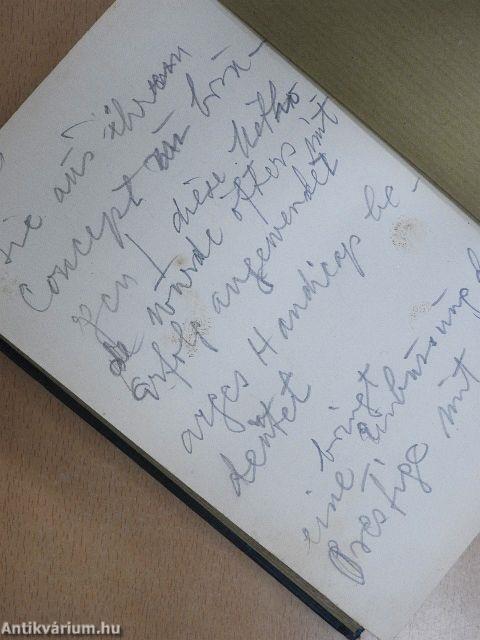 sie aus ihrem
Concept zu brin-
gen / diese Metho
de wurde öfters mit
Erfolg angewendet
arges Handicap be-
deutet
bringt
eine Einbüssung
Prestige mit
Antikvárium.hu